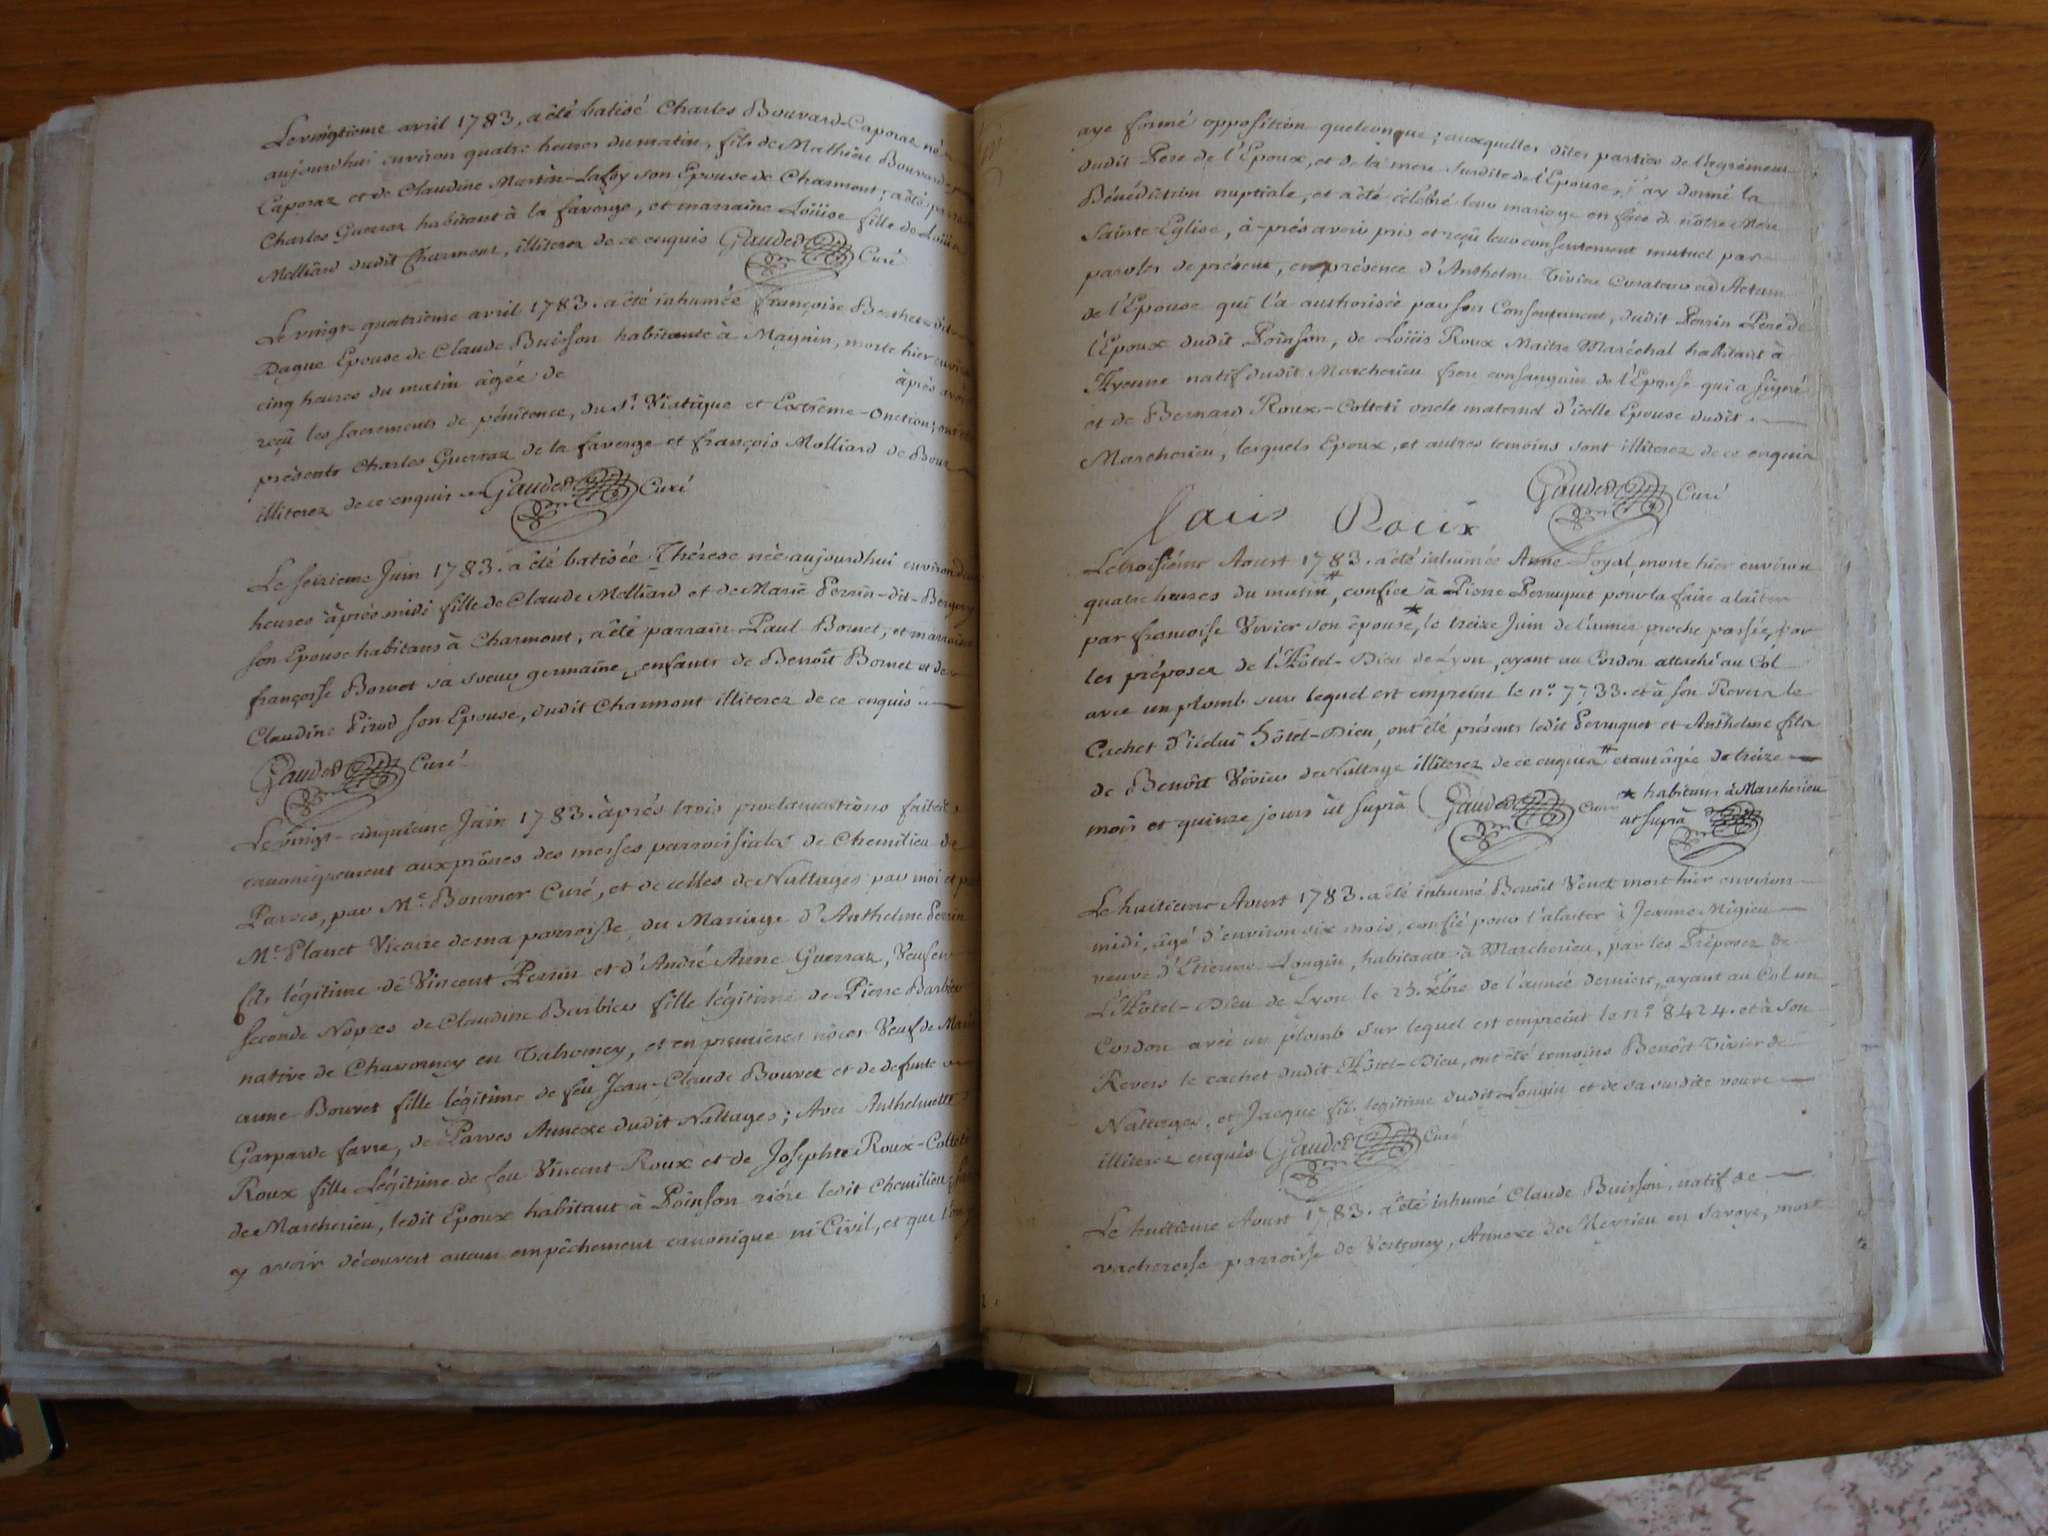 Le vingtieme avril 1783. a été batisé Charles Bouvard-Caporaz né
aujourdhui environ quatre heures du matin, fils de Mathieu Bouvard
Caporaz et de Claudine Martin-Lafoy son Epouse de Charmont; a été
Charles Guerraz habitant à la faverge, et marraine Loüise fille de Loüis
Molliard dudit Charmont, illiterez de ce enquis Gaudet Curé
Le vingt-quatrieme avril 1783. a été inhumée françoise Berthet-dit-
Dague Epouse de Claude Buisson habitante à Maynin, morte hier environ
cinq heures du matin âgée de après avoir
reçü les sacrements de pénitence, du St. Viatique et Extrême-Onction; ont été
présents Charles Guerraz de la faverge et françois Molliard de
illiterez de ce enquis Gaudet Curé
Le seizieme Juin 1783. a été batisée Thérese née aujourdhui environ
heures àprès midi fille de Claude Molliard et de Marie Perrin-dit-
son Epouse habitans à Charmont, a été parrain Paul Bornet, et marraine
françoise Bornet sa soeur germaine, enfants de Benoît Bornet et de
Claudine Pirod son Epouse, dudit Charmont illiterez de ce enquis
Gaudet Curé
Le vingt-cinquieme Juin 1783. àprès trois proclamations faites
canoniquement aux prônes des messes parroissiales de Chemilieu de
Parves, par Mr. Bouvier Curé, et de celles de Nattages par moi et par
Mr. Planet Vicaire de ma parroisse, du Mariage d'Anthelme Perrin
fils légitime de Vincent Perrin et d'André Anne Guerraz, Veuf en
seconde Nopces de Claudine Barbier fille légitime de Pierre Barbier
native de Chavornay en Valromey, et en premieres nôces Veuf de Marie
anne Bouvet fille légitime de feu Jean-Claude Bouvet et de defunte
Gasparde favre, de Parves Annexe dudit Nattages; Avec Anthelmette
Roux fille Légitime de feu Vincent Roux et de Josephte Roux-Colteti
de Marcherieu, ledit Epoux habitant à Poinson riére ledit Chemilieu, sans
y avoir découvert aucun empêchement canonique ni Civil, et que l'on y
aye formé opposition quelconque; auxquelles dites parties de l'agrément
dudit Pere de l'Epoux, et de la mere susdite de l'Epouse, j'ay donné la
Bénédiction nuptiale, et a été célébré leur mariage en face de nôtre Mere
Sainte Eglise, à-près avoir pris et reçü leur consentement mutuel par
paroles de présent, en présence d'Anthelme Vivier Curateur ad Actum
de l'Epouse qui l'a authorisée par son Consentement, dudit Perrin Pere de
l'Epoux dudit Poinson, de Loüis Roux Maitre Maréchal habitant à
Ayenne natif dudit Marcherieu frere consanguin de l'Epouse qui a signé
et de Bernard Roux-Colteti oncle maternel d'icelle Epouse dudit
Marcherieu, lesquels Epoux, et autres temoins sont illiterez de ce enquis
Gaudet Curé
Louis Roux
Le troisiéme Aoust 1783. a été inhumée Anne Loyal, morte hier environ
quatre heures du matin #, confiée à Pierre Perruquet pour la faire alaiter
par francoise Vivier son épouse *, le treize Juin de l'année proche passée, par
les préposez de l'Hôtel-Dieu de Lyon, ayant au Cordon attaché au Col
avec un plomb sur lequel est empreint le no. 7733. et à son Revers le
Cachet d'icelui Hôtel-Dieu, ont été présents ledit Perruquet et Anthelme fils
de Benoît Vivier de Nattage illiterez de ce enquis # etant âgée de treize
mois et quinze jours ut suprà Gaudet Curé * habitans à Marcherieu
ut suprà
Le huitieme Aoust 1783. a été inhumé Benoît Venet mort hier environ
midi, âgé d'environ six mois, confié pour l'alaiter à Jeanne Migieu
veuve d'Etienne Longin, habitante à Marcherieu, par les Préposez de
L'Hôtel-Dieu de Lyon le 25. xbre de l'année derniere, ayant au Col un
Cordon avec un plomb sur lequel est empreint le no. 8424. et à son
Revers le cachet dudit Hôtel-Dieu, ont été temoins Benoît Vivier de
Nattages, et Jacque fils légitime dudit Longin et de sa susdite veuve
illiterez enquis Gaudet Curé
Le huitieme Aoust 1783. a été inhumé Claude Buisson, natif de
vacheresse parroisse de Verthemey, Annexe de Meyrieu en Savoye, mort